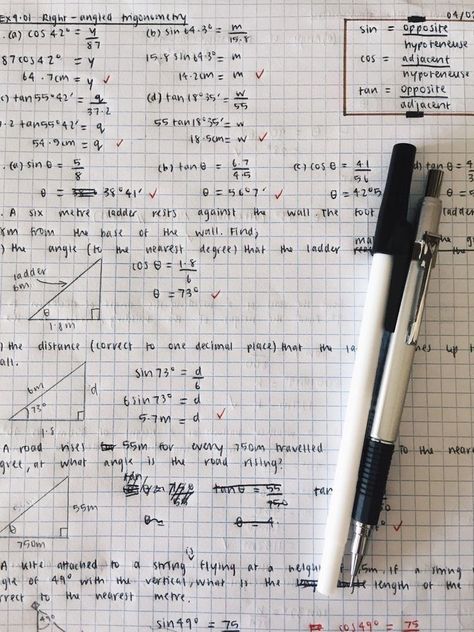 Ex9.01 Right-angled trigonometry 04/02
sin = opposite
hypoteneuse
cos = adjacent
hypoteneuse
tan = opposite
adjacent
(a) cos 42° = y
87
87 cos 42° = y
64.7cm = y ✓
(b) sin 64.3° = m
15.8
15.8 sin 64.3° = m
14.2cm = m ✓
tan 55°42' = q
37.2
tan 55°42' = q
54.9cm = q ✓
(d) tan 18°35' = w
55
55 tan 18°35' = w
18.5cm = w ✓
(a) sin θ = 5
8
θ = 38°41' ✓
(b) tan θ = 6.7
4.5
θ = 56°7' ✓
(c) cos θ = 41
56
θ = ✓
tan θ =
θ =
A six metre ladder rests against the wall. The foot
from the base of the wall. Find;
the angle (to the nearest degree) that the ladder
ladder
6m
θ
1.8m
cos θ = 1.8
6
θ = 73° ✓
the distance (correct to one decimal place) that the up to
6m
d
73°
1.8
sin 73° = d
6
6 sin 73° = d
5.7m = d ✓
A road rises 55m for every 750m travelled to the
at what angle is the road rising?
55m
θ
750m
tan
tan θ = 55
750
θ = 4
tan
A kite attached to a string flying at a height of If a string
of 49° with the vertical, what is the length of the
to the nearest metre.
49°
sin 49° = 75
cos 49° = 75